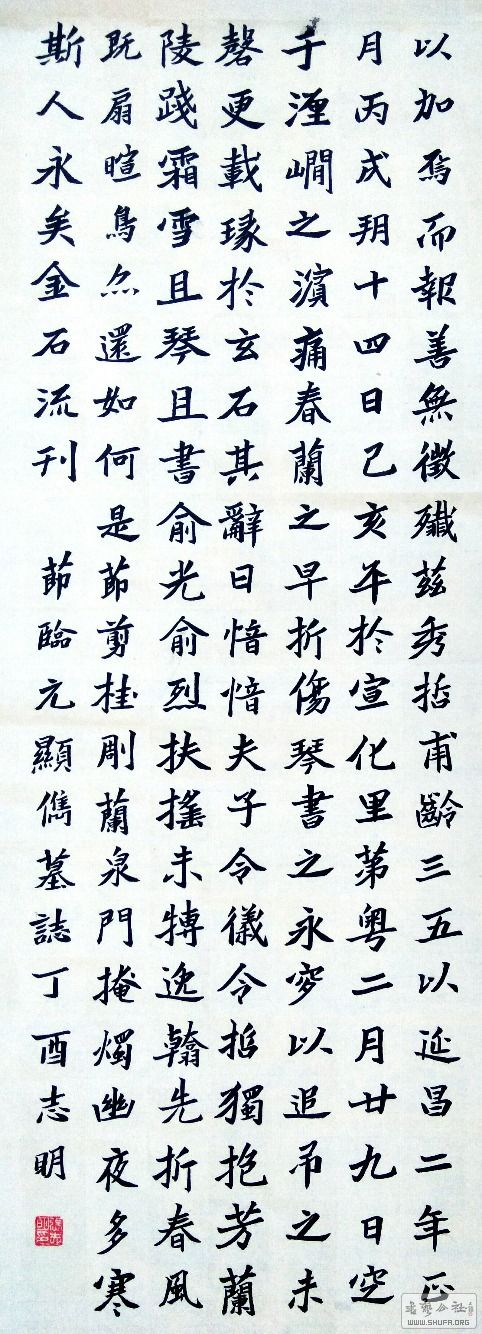 以加焉而報善無徵殲茲秀哲甫齡三五以延昌二年正
月丙戌朔十四日己亥卒於宣化里第粵二月廿九日窆
于瀍澗之濱痛春蘭之早折傷琴書之永穸以追吊之未
磬更載瑑於玄石其辭曰愔愔夫子令儀令哲獨抱芳蘭
陵踐霜雪且琴且書俞光俞烈扶搖未摶逸翰先折春風
既扇暄鳥亦還如何是節剪桂剛蘭泉門掩燭幽夜多寒
斯人永矣金石流刊 節臨元顯儁墓誌丁酉志明
WWW.SHUFA.ORG